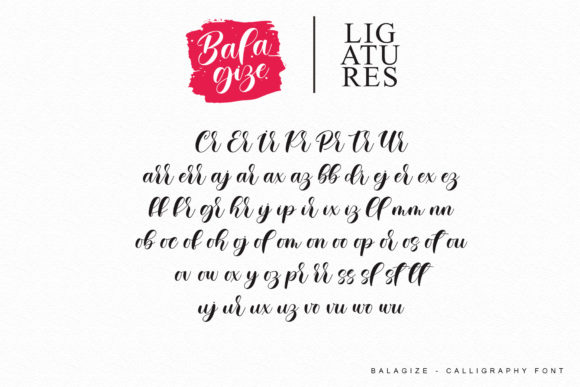 Bala
gize
LIG
ATU
RES
Cr Er Ir Kr Pr Tr Ur
arr err aj ar ax az bb dr ej er ex ez
ff fr gr hr ij ip ir ix iz lf mm nn
ob oc of oh oj ol om on oo op or os ot ou
ov ow ox oy oz pr rr ss sf st tt
uj ur ux uz vo vu wo wu
BALAGIZE - CALLIGRAPHY FONT